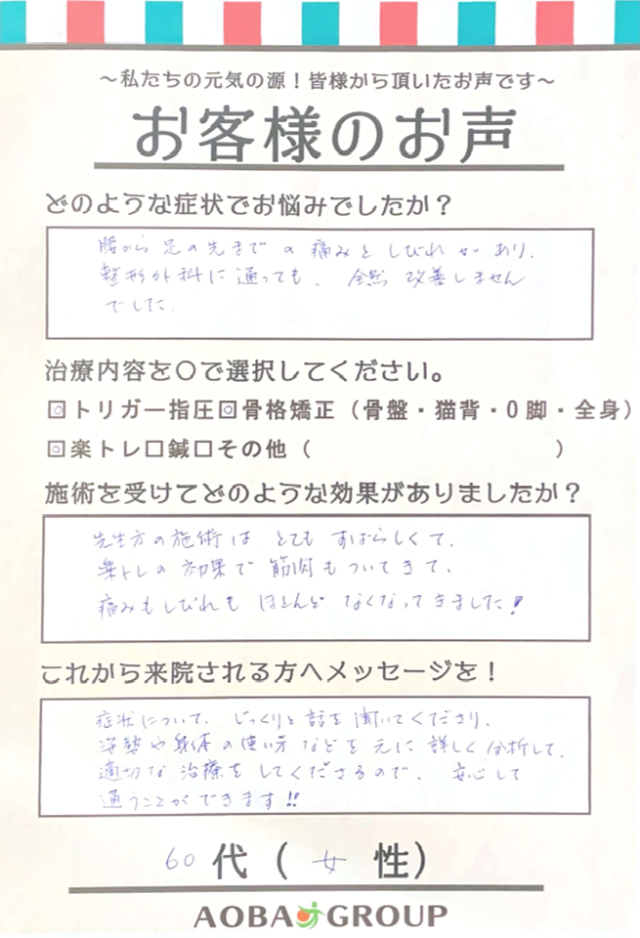 ～私たちの元気の源！皆様から頂いたお声です～
お客様のお声
どのような症状でお悩みでしたか？
腰から足の先までの痛みとしびれがあり、
整形外科に通っても、全然改善しません
でした。
治療内容を〇で選択してください。
☐トリガー指圧☐骨格矯正（骨盤・猫背・O脚・全身）
☐楽トレ☐鍼☐その他（　　　　　　　　　　）
施術を受けてどのような効果がありましたか？
先生方の施術は とても すばらしくて、
楽トレの効果で 筋肉もついてきて、
痛みもしびれも ほとんど なくなってきました！
これから来院される方へメッセージを！
症状について、じっくりと話を聞いてくださり、
姿勢や身体の使い方などを元に詳しく分析して、
適切な治療をしてくださるので、安心して
通うことができます!!
60代（女性）
AOBA GROUP